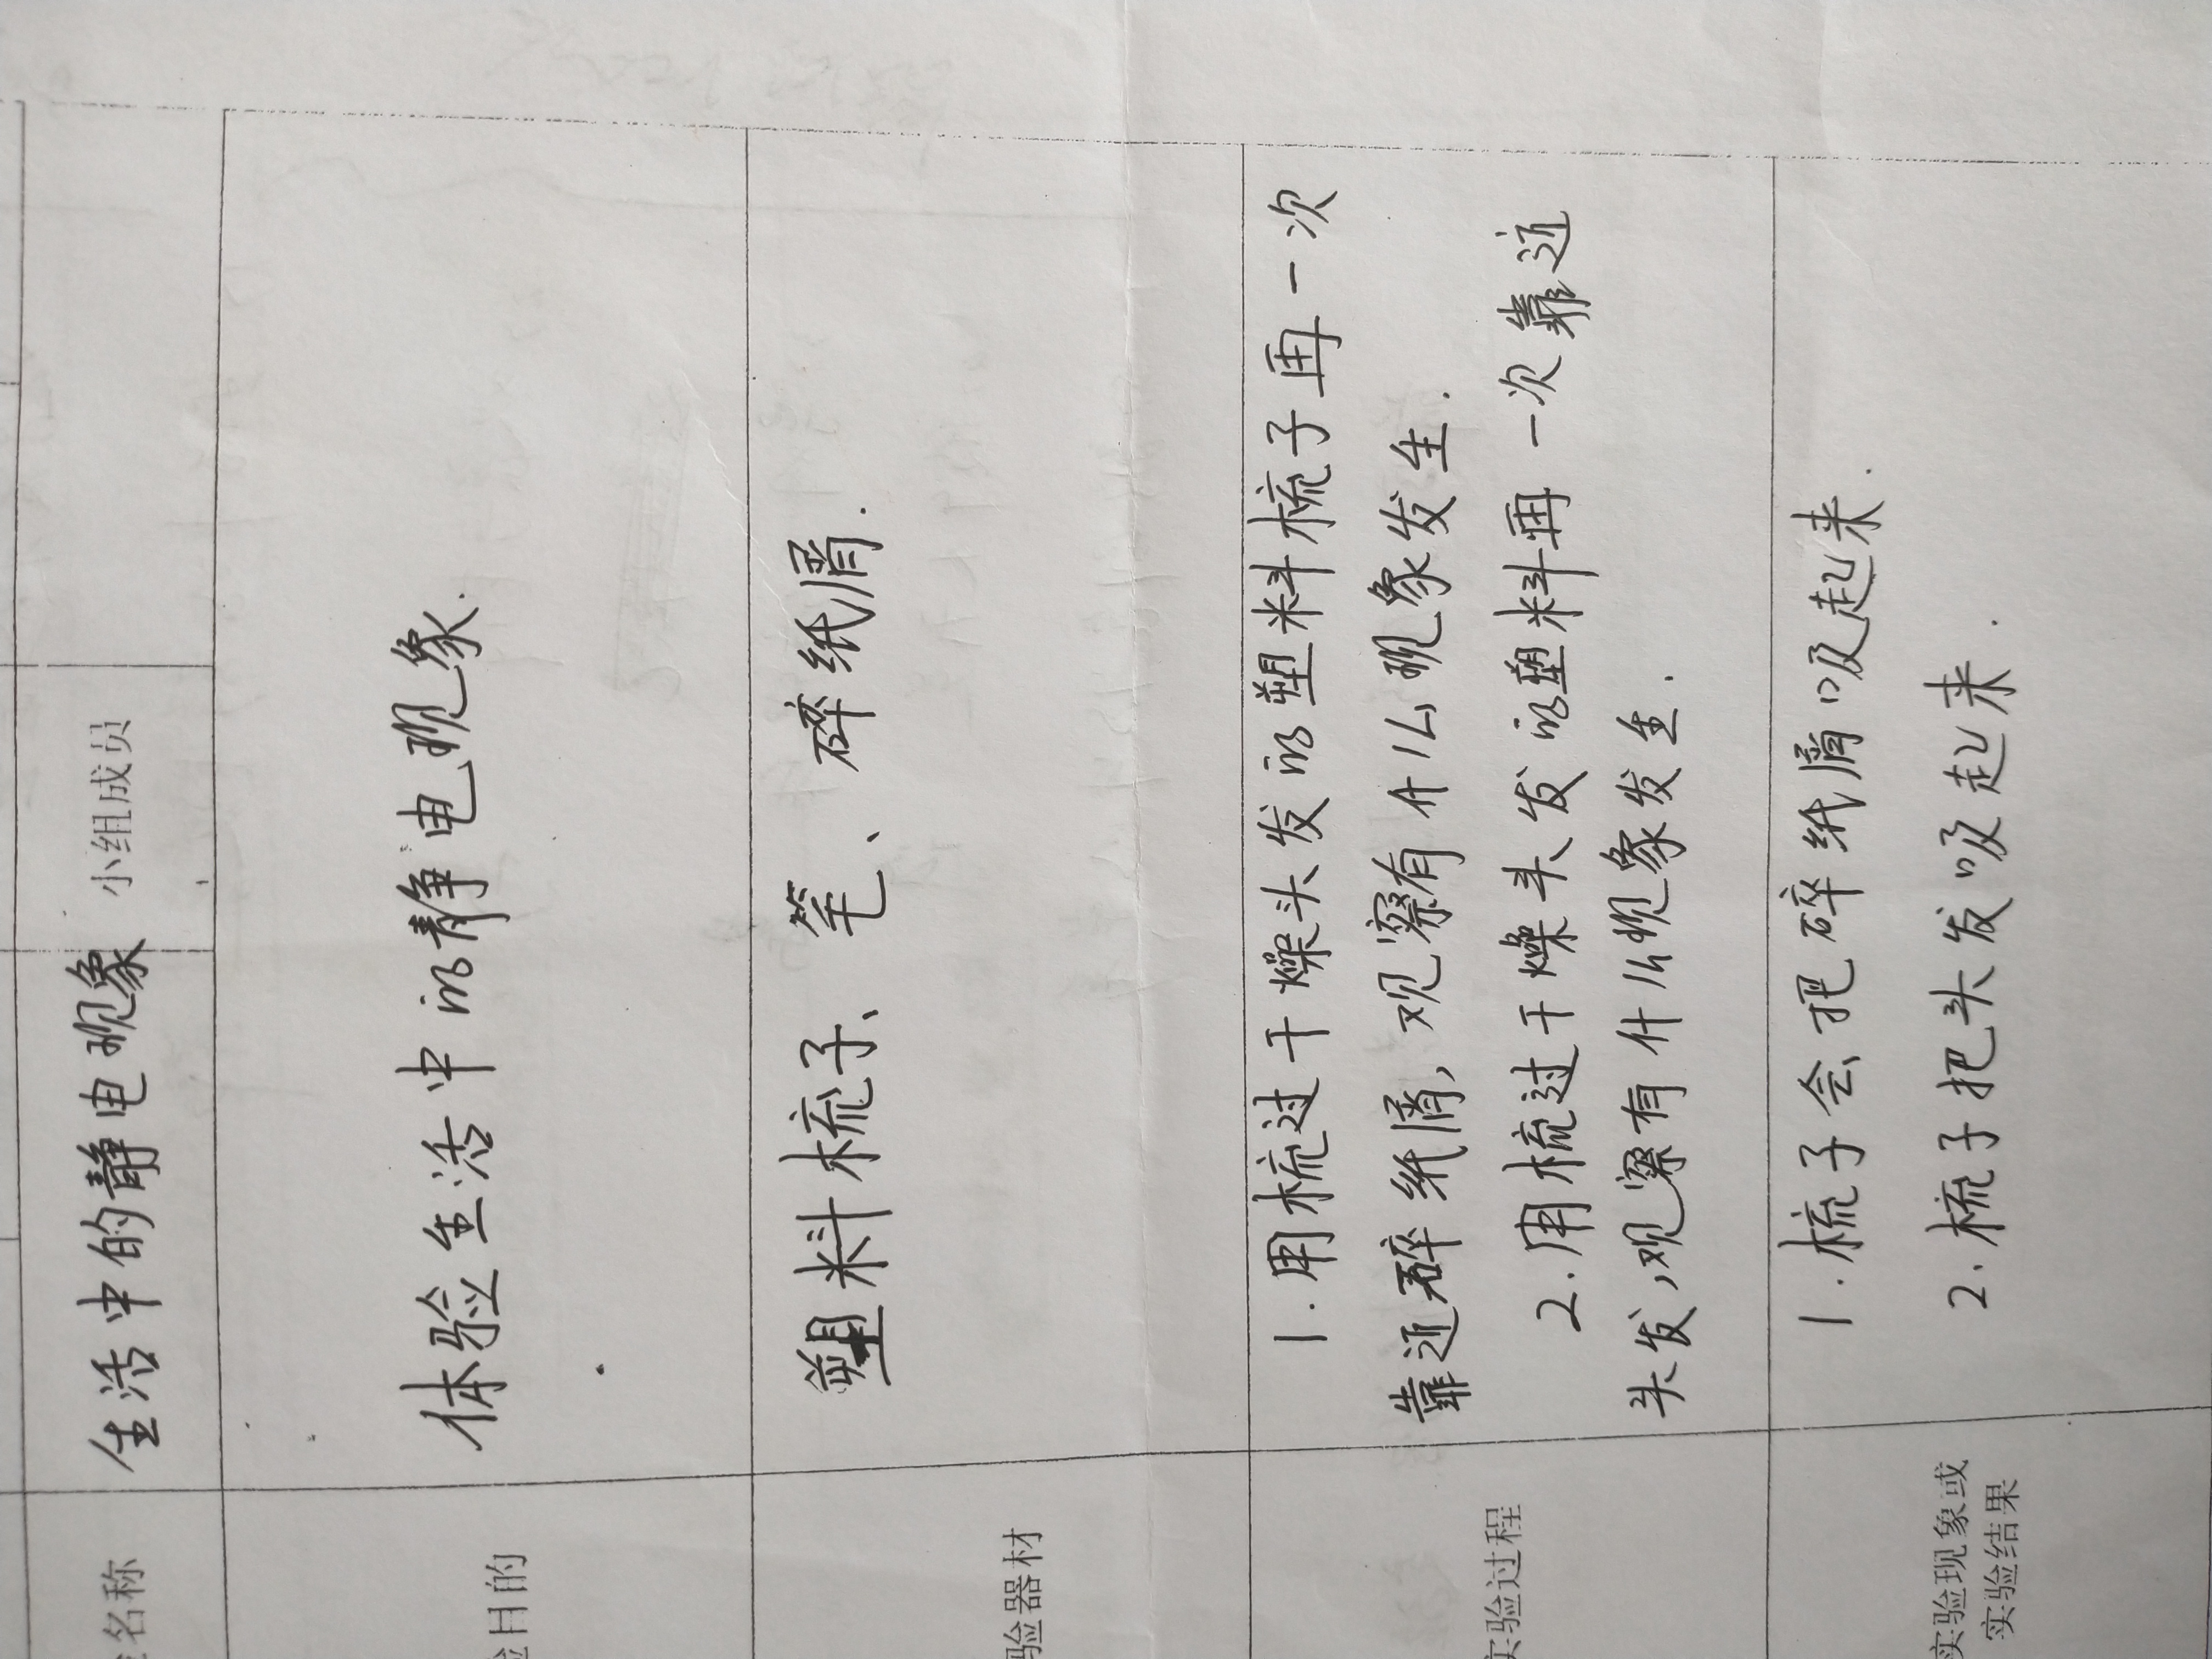 名称 生活中的静电现象 小组成员
验目的 体验生活中的静电现象.
验器材 塑料梳子、笔、碎纸屑.
实验过程
1.用梳过干燥头发的塑料梳子再一次
靠近碎纸屑,观察有什么现象发生.
2.用梳过干燥头发的塑料再一次靠近
头发,观察有什么现象发生.
实验现象或
实验结果
1.梳子会把碎纸屑吸起来.
2.梳子把头发吸起来.